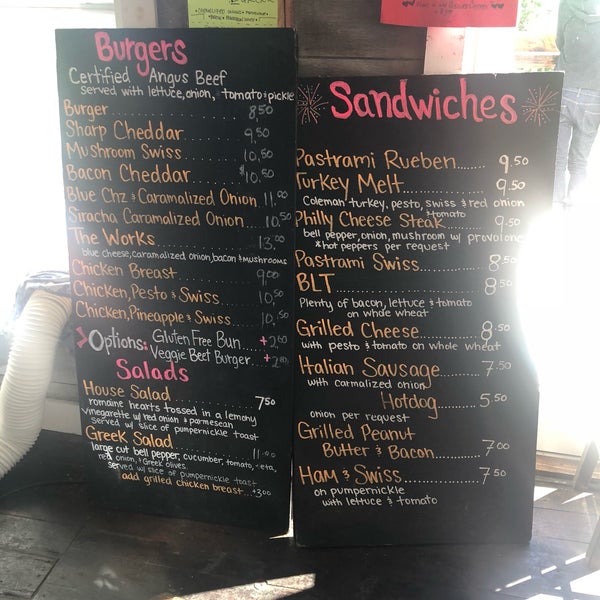 Burgers
Certified Angus Beef
served with lettuce, onion, tomato + pickle
Burger 8.50
Sharp Cheddar 9.50
Mushroom Swiss 10.50
Bacon Cheddar $10.50
Blue Chz & Caramalized Onion 11.00
Siracha Caramalized Onion 10.50
The Works 13.00
blue cheese, caramalized onion, bacon & mushrooms
Chicken Breast 9.00
Chicken, Pesto & Swiss 10.50
Chicken, Pineapple & Swiss 10.50
Options: Gluten Free Bun +2.00
Veggie Beet Burger +2.00
Salads
House Salad 7.50
romaine hearts tossed in a lemony
vinegarette w/ red onion & parmesean
served w/ slice of pumpernickle toast
Greek Salad 11.00
large cut bell pepper, cucumber, tomato, feta,
red onion, & Greek olives
served w/ slice of pumpernickle toast
add grilled chicken breast +3.00
Sandwiches
Pastrami Rueben 9.50
Turkey Melt 9.50
Coleman turkey, pesto, swiss & red onion
+tomato
Philly Cheese Steak 9.50
bell pepper, onion, mushroom w/ provolone
*hot peppers per request
Pastrami Swiss 8.50
BLT 8.50
Plenty of bacon, lettuce & tomato
on whole wheat
Grilled Cheese 8.50
with pesto & tomato on whole wheat
Italian Sausage 7.50
with carmalized onion
Hotdog 5.50
onion per request
Grilled Peanut
Butter & Bacon 7.00
Ham & Swiss 7.50
on pumpernickle
with lettuce & tomato